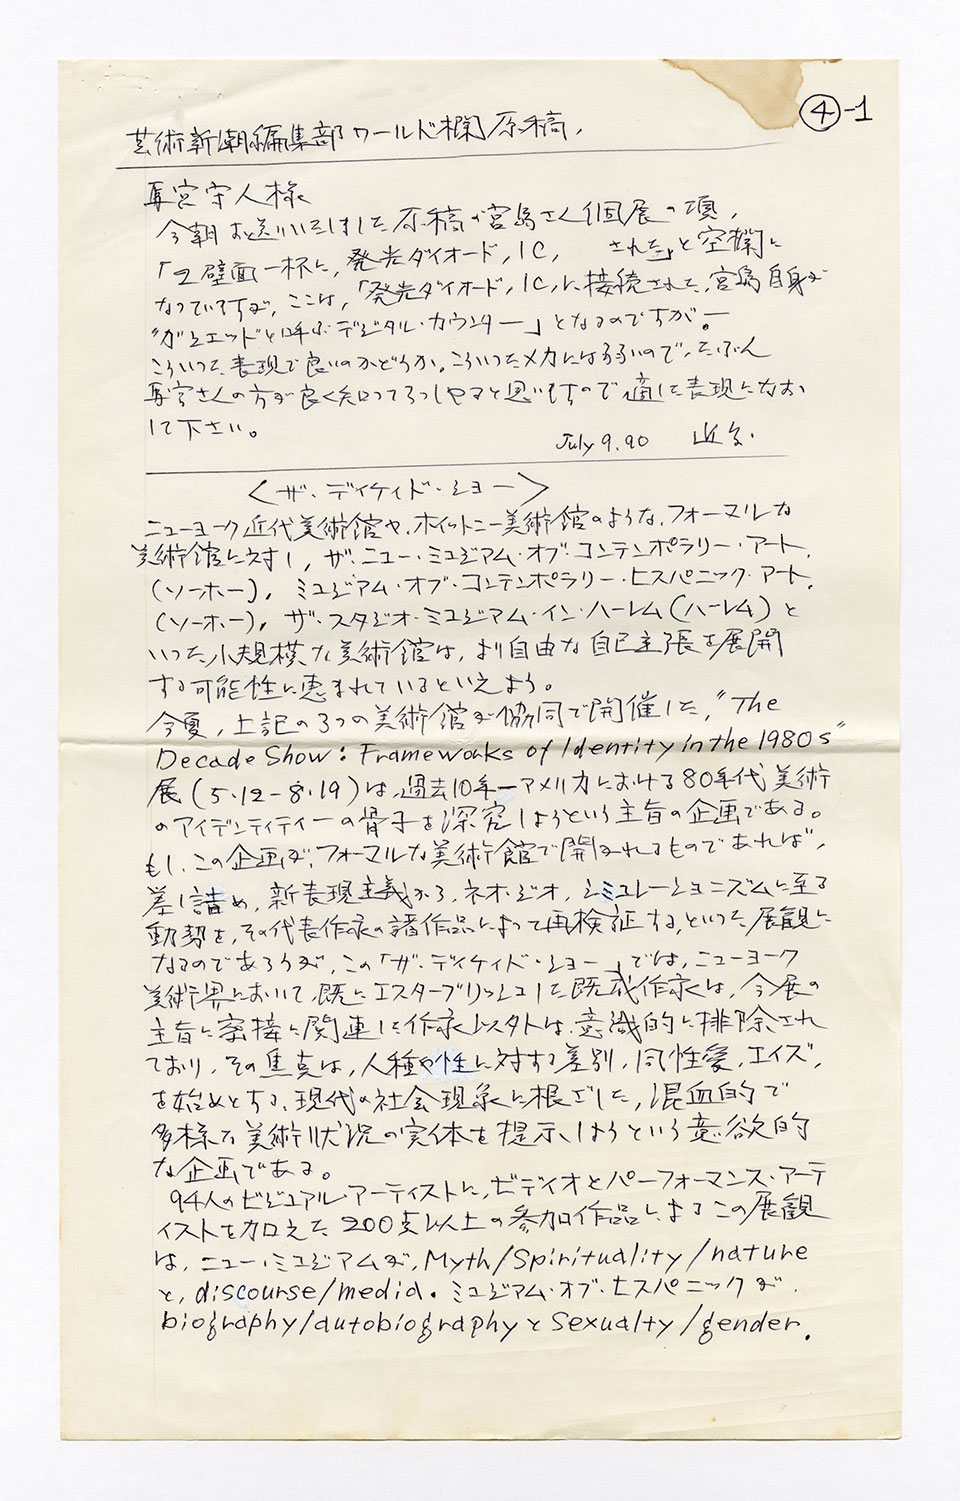 ④-1
芸術新潮編集部ワールド欄原稿,
宮守人様
今朝お送りいたしました原稿の宮島さん個展の項,
「2壁面一杯に,発光ダイオード,IC,　された」と空欄に
なっていますが,ここは,「発光ダイオード,IC,に接続された,宮島自身が
"ガジェッドと呼ぶデジタル・カウンター」となるのですが.—
こういった表現で良いのかどうか。こういったメカにはよわいので,たぶん
さんの方が良く知ってらっしゃると思いますので適した表現になお
して下さい。
July 9.90 近
〈ザ・ディケイド・ショー〉
ニューヨーク近代美術館や,ホイットニー美術館のような,フォーマルな
美術館に対し,ザ・ニュー・ミュジアム・オブ・コンテンポラリー・アート,
(ソーホー),ミュジアム・オブ・コンテンポラリー・ヒスパニック・アート,
(ソーホー),ザ・スタジオ・ミュジアム・イン・ハーレム(ハーレム)と
いった小規模な美術館は,より自由な自己主張を展開
する可能性に恵まれているといえよう。
今夏,上記の3つの美術館が協同で開催した,"The
Decade Show: Frameworks of Identity in the 1980s"
展(5・12-8・19)は,過去10年—アメリカにおける80年代美術
のアイデンティティーの骨子を深究しようという主旨の企画である。
もし,この企画が,フォーマルな美術館で開かれるものであれば,
差し詰め,新表現主義から,ネオ・ジオ,シミュレーショニズムに至る
動勢を,その代表作家の諸作品によって再検証する,といった展観に
なるのであろうが,この「ザ・ディケイド・ショー」では,ニューヨーク
美術界において,既にエスターブリッシュした既成作家は,今展の
主旨に密接に関連した作家以外は,意識的に排除され
ており,その焦点は,人種や性に対する差別,同性愛,エイズ,
を始めとする,現代の社会現象に根ざした,混血的で
多様な美術状況の実体を提示しようという意欲的
な企画である。
94人のビジュアル・アーティストに,ビディオとパーフォーマンス・アーテ
ィストを加えた200点以上の参加作品によるこの展観
は,ニュー・ミュジアムが,Myth/Spirituality/nature
と,discourse/media.ミュジアム・オブ・ヒスパニックが
biography/autobiographyとSexualty/gender.